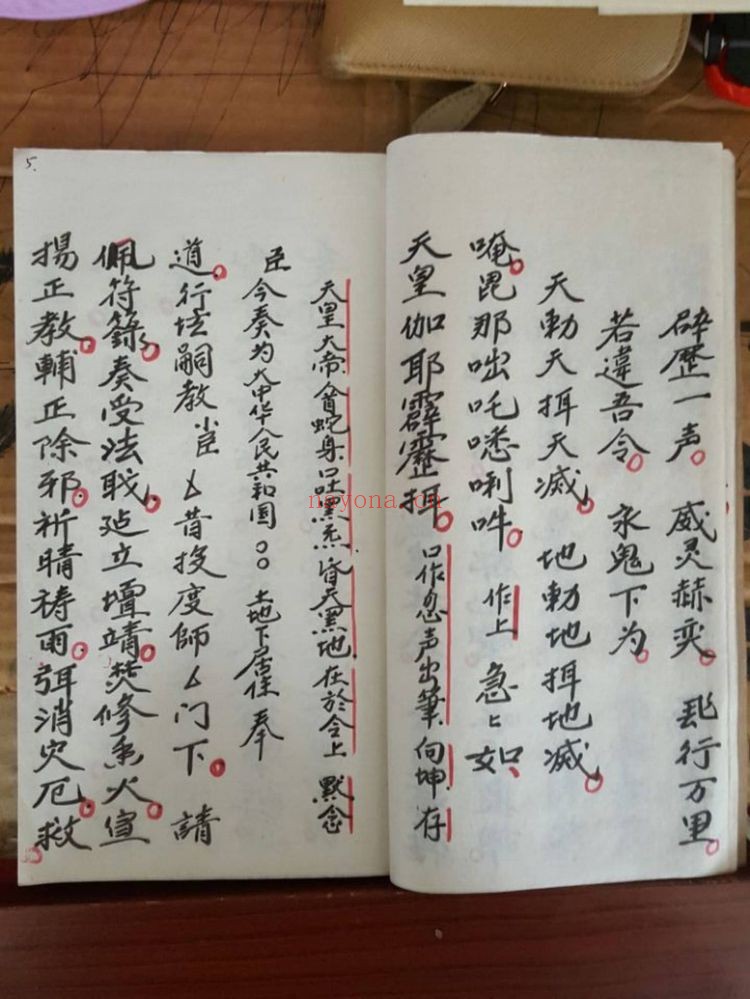 辟歷一声。威灵赫奕。飛行万里。
若違吾令。永鬼下为。
天勅天摄天滅。地勅地摄地滅。
唵毘那咄吒㗭唎吽。作上 急〻如
天皇伽耶霹靂摄。口作忽声出筆向坤存
天皇大帝人首蛇身口吐黑炁昏天黑地在於令上 默念
臣今奏为大中华人民共和国○○土地下居住奉
道。行坛嗣教小臣厶昔投度師厶门下。請
佩符籙。奏受法职。廷立壇靖。焚修香火。宣
揚正教。輔正除邪。祈晴祷雨。弭消灾厄。救
5.
nayona.cn